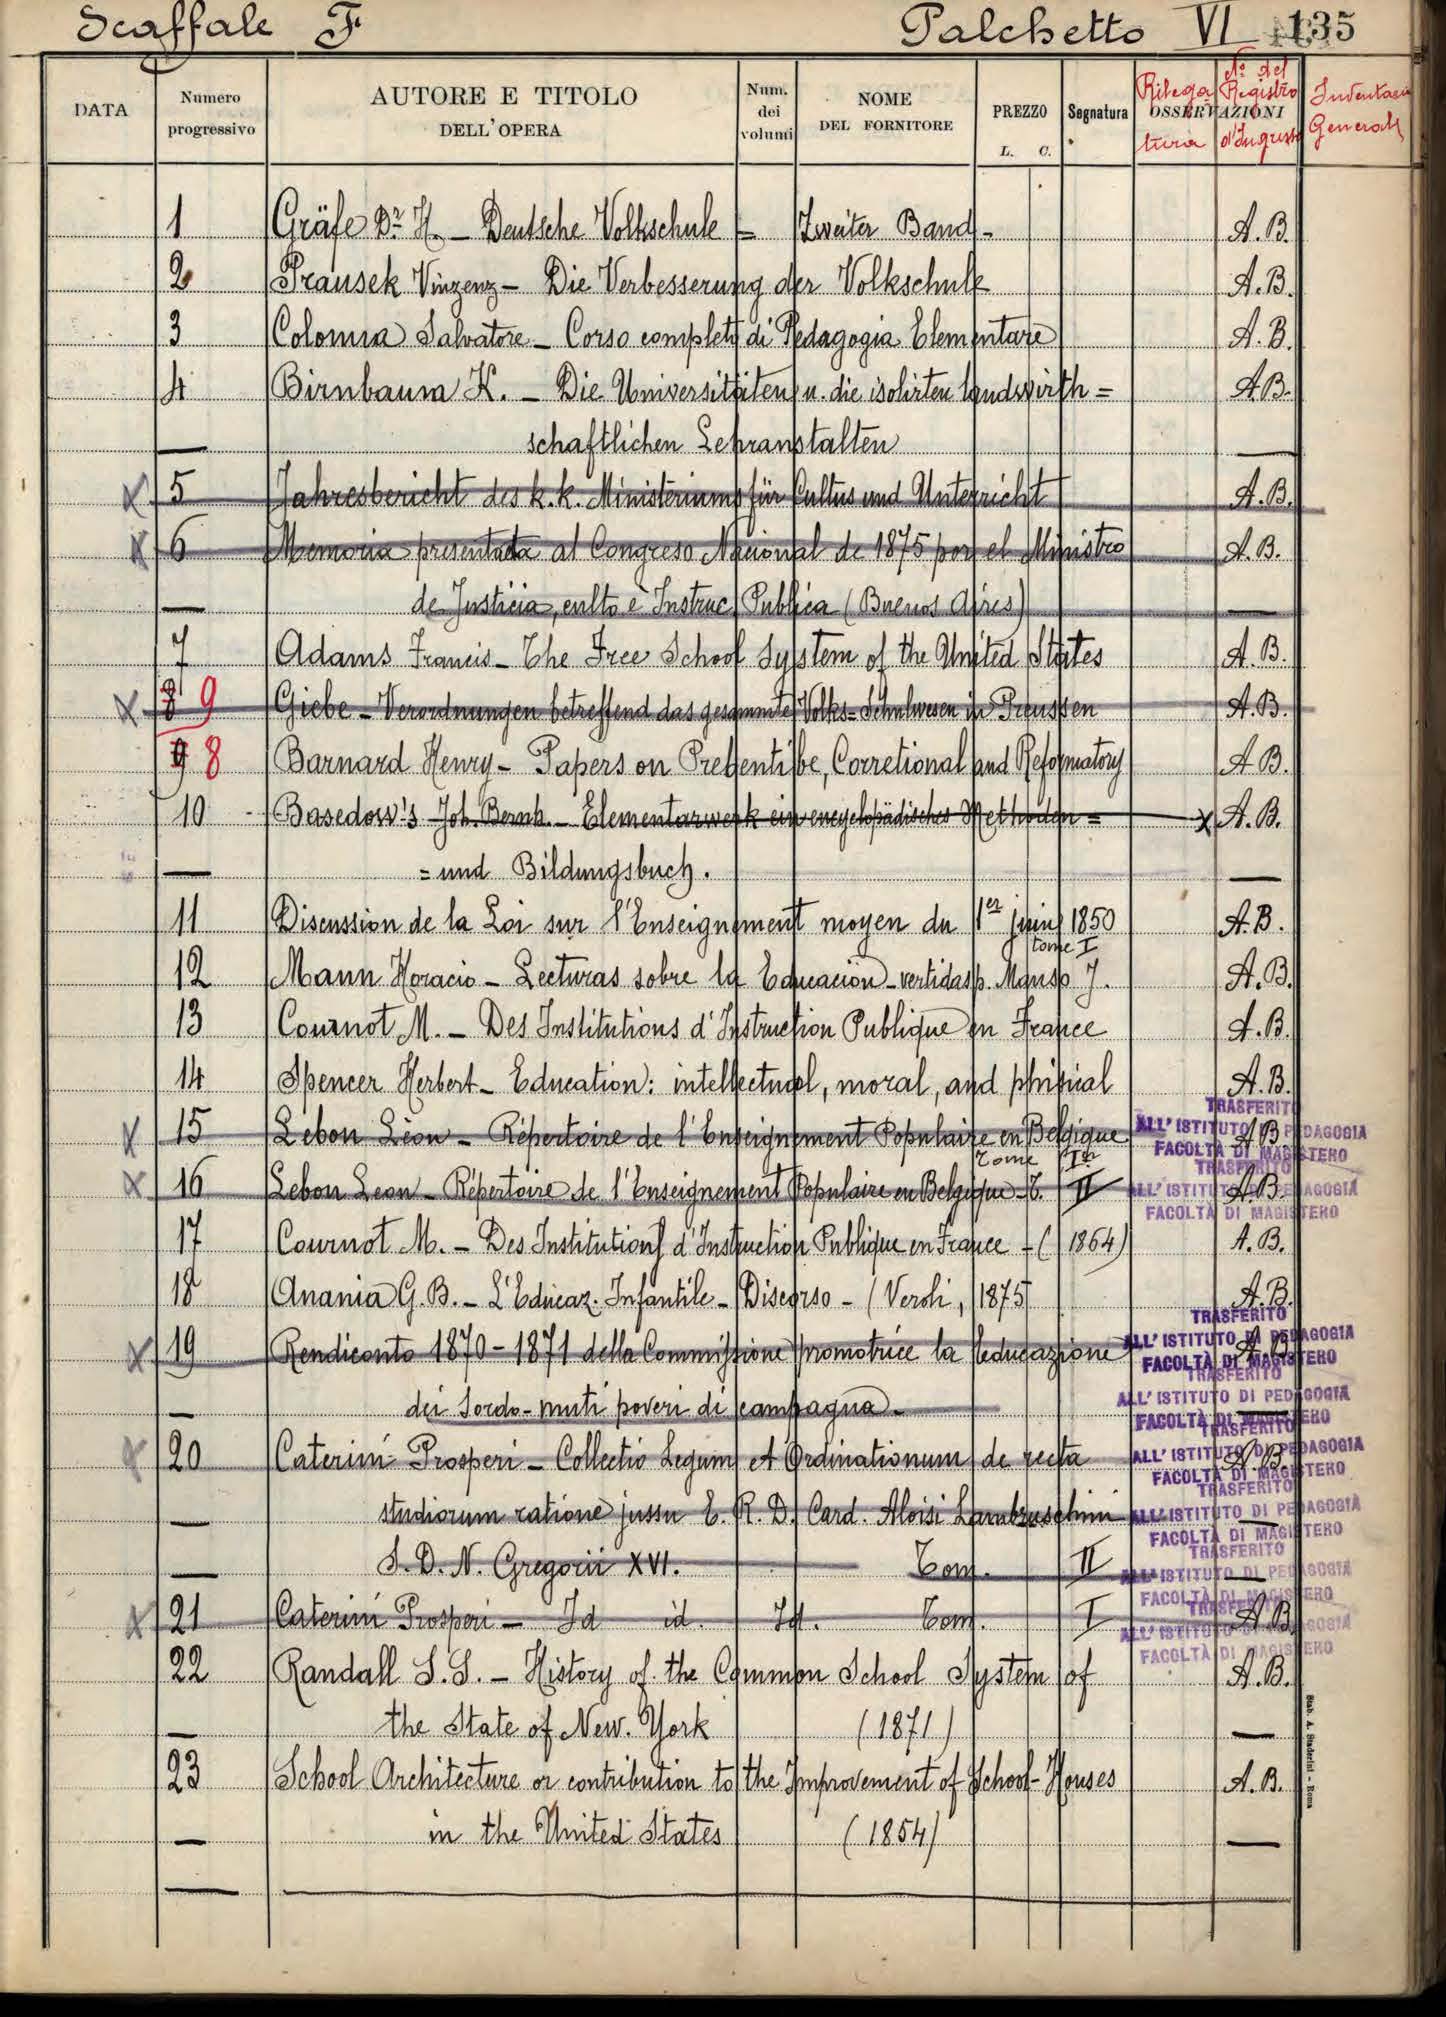 Scaffale F Palchetto VI 135
DATA Numero progressivo AUTORE E TITOLO DELL'OPERA Num. dei volumi NOME DEL FORNITORE PREZZO L. C. Segnatura OSSERVAZIONI Rilegatura N.º del Registro d'Ingresso Inventario Generale
1 Gräfe Dr. H. – Deutsche Volkschule = Zweiter Band – A. B.
2 Prausek Vinzenz – Die Verbesserung der Volkschule A. B.
3 Colonna Salvatore – Corso completo di Pedagogia Elementare A. B.
4 Birnbaum K. – Die Universitäten u. die isolirten landwirth= A. B.
— schaftlichen Lehranstalten —
X 5 Jahresbericht des k. k. Ministeriums für Cultus und Unterricht A. B.
X 6 Memoria presentada al Congreso Nacional de 1875 por el Ministro A. B.
— de Justicia, culto è Instruc. Publica (Buenos Aires) —
7 Adams Francis – The Free School System of the United States A. B.
X 8 9 Giebe – Verordnungen betreffend das gesammte Volks=Schulwesen in Preussen A. B.
9 8 Barnard Henry – Papers on Prebentibe, Corretional and Reformatory A. B.
10 Basedow's Joh. Bernh. – Elementarwerk ein encyclopädisches Methoden= X A. B.
— =und Bildungsbuch. —
11 Discussion de la Loi sur l'Enseignement moyen du 1er juin 1850 A. B.
tome I
12 Mann Horacio – Lecturas sobre la Educación – vertidas p. Manso J. A. B.
13 Cournot M. – Des Institutions d'Instruction Publique en France A. B.
14 Spencer Herbert – Education: intellectual, moral, and phisical A. B.
TRASFERITO
X 15 Lebon Léon – Répertoire de l'Enseignement Populaire en Belgique A. B.
ALL'ISTITUTO DI PEDAGOGIA
FACOLTÀ DI MAGISTERO
Tome Ier
TRASFERITO
X 16 Lebon Leon – Répertoire de l'Enseignement Populaire en Belgique – T. II A. B.
ALL'ISTITUTO DI PEDAGOGIA
FACOLTÀ DI MAGISTERO
17 Cournot M. – Des Institutions d'Instruction Publique en France – (1864) A. B.
18 Anania G. B. – L'Educaz. Infantile – Discorso – (Veroli, 1875 A. B.
TRASFERITO
X 19 Rendiconto 1870 – 1871 della Commissione promotrice la educazione A. B.
ALL'ISTITUTO DI PEDAGOGIA
FACOLTÀ DI MAGISTERO
TRASFERITO
— dei Sordo-muti poveri di campagna. —
ALL'ISTITUTO DI PEDAGOGIA
FACOLTÀ DI MAGISTERO
TRASFERITO
X 20 Caterini Prosperi – Collectio Legum et Ordinationum de recta A. B.
ALL'ISTITUTO DI PEDAGOGIA
FACOLTÀ DI MAGISTERO
TRASFERITO
— studiorum ratione jussu E. R. D. Card. Aloisi Lambruschini —
ALL'ISTITUTO DI PEDAGOGIA
FACOLTÀ DI MAGISTERO
TRASFERITO
— S. D. N. Gregorii XVI. Tom. II —
ALL'ISTITUTO DI PEDAGOGIA
FACOLTÀ DI MAGISTERO
TRASFERITO
X 21 Caterini Prosperi – Id id. Id. Tom. I A. B.
ALL'ISTITUTO DI PEDAGOGIA
FACOLTÀ DI MAGISTERO
22 Randall S. S. – History of the Common School System of A. B.
— the State of New. York (1871) —
23 School Architecture or contribution to the Improvement of School-Houses A. B.
— in the United States (1854) —
Stab. A. Staderini - Roma